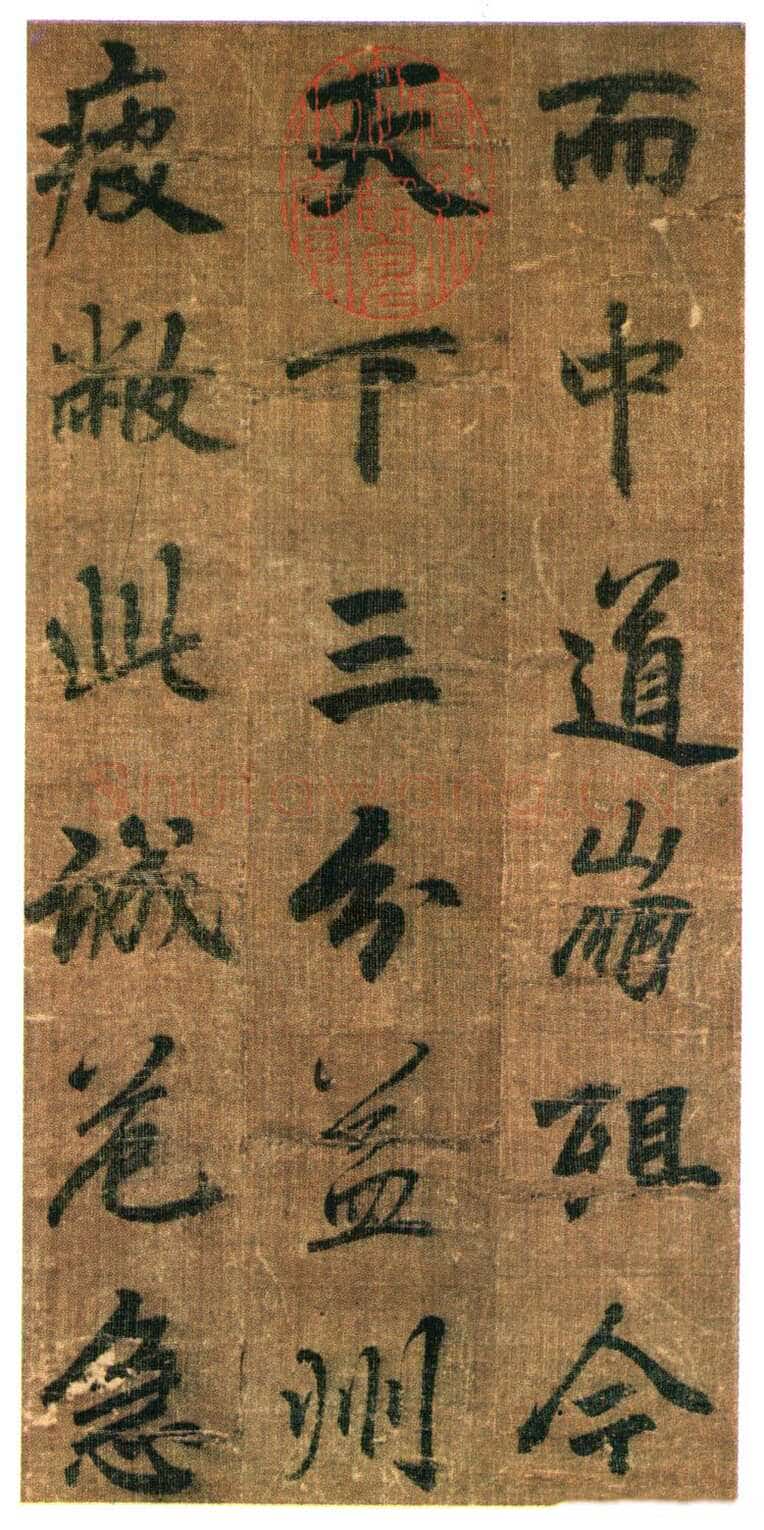 而中道崩殂今
天下三分益州
疲敝此誠危急
Shufawang.CN